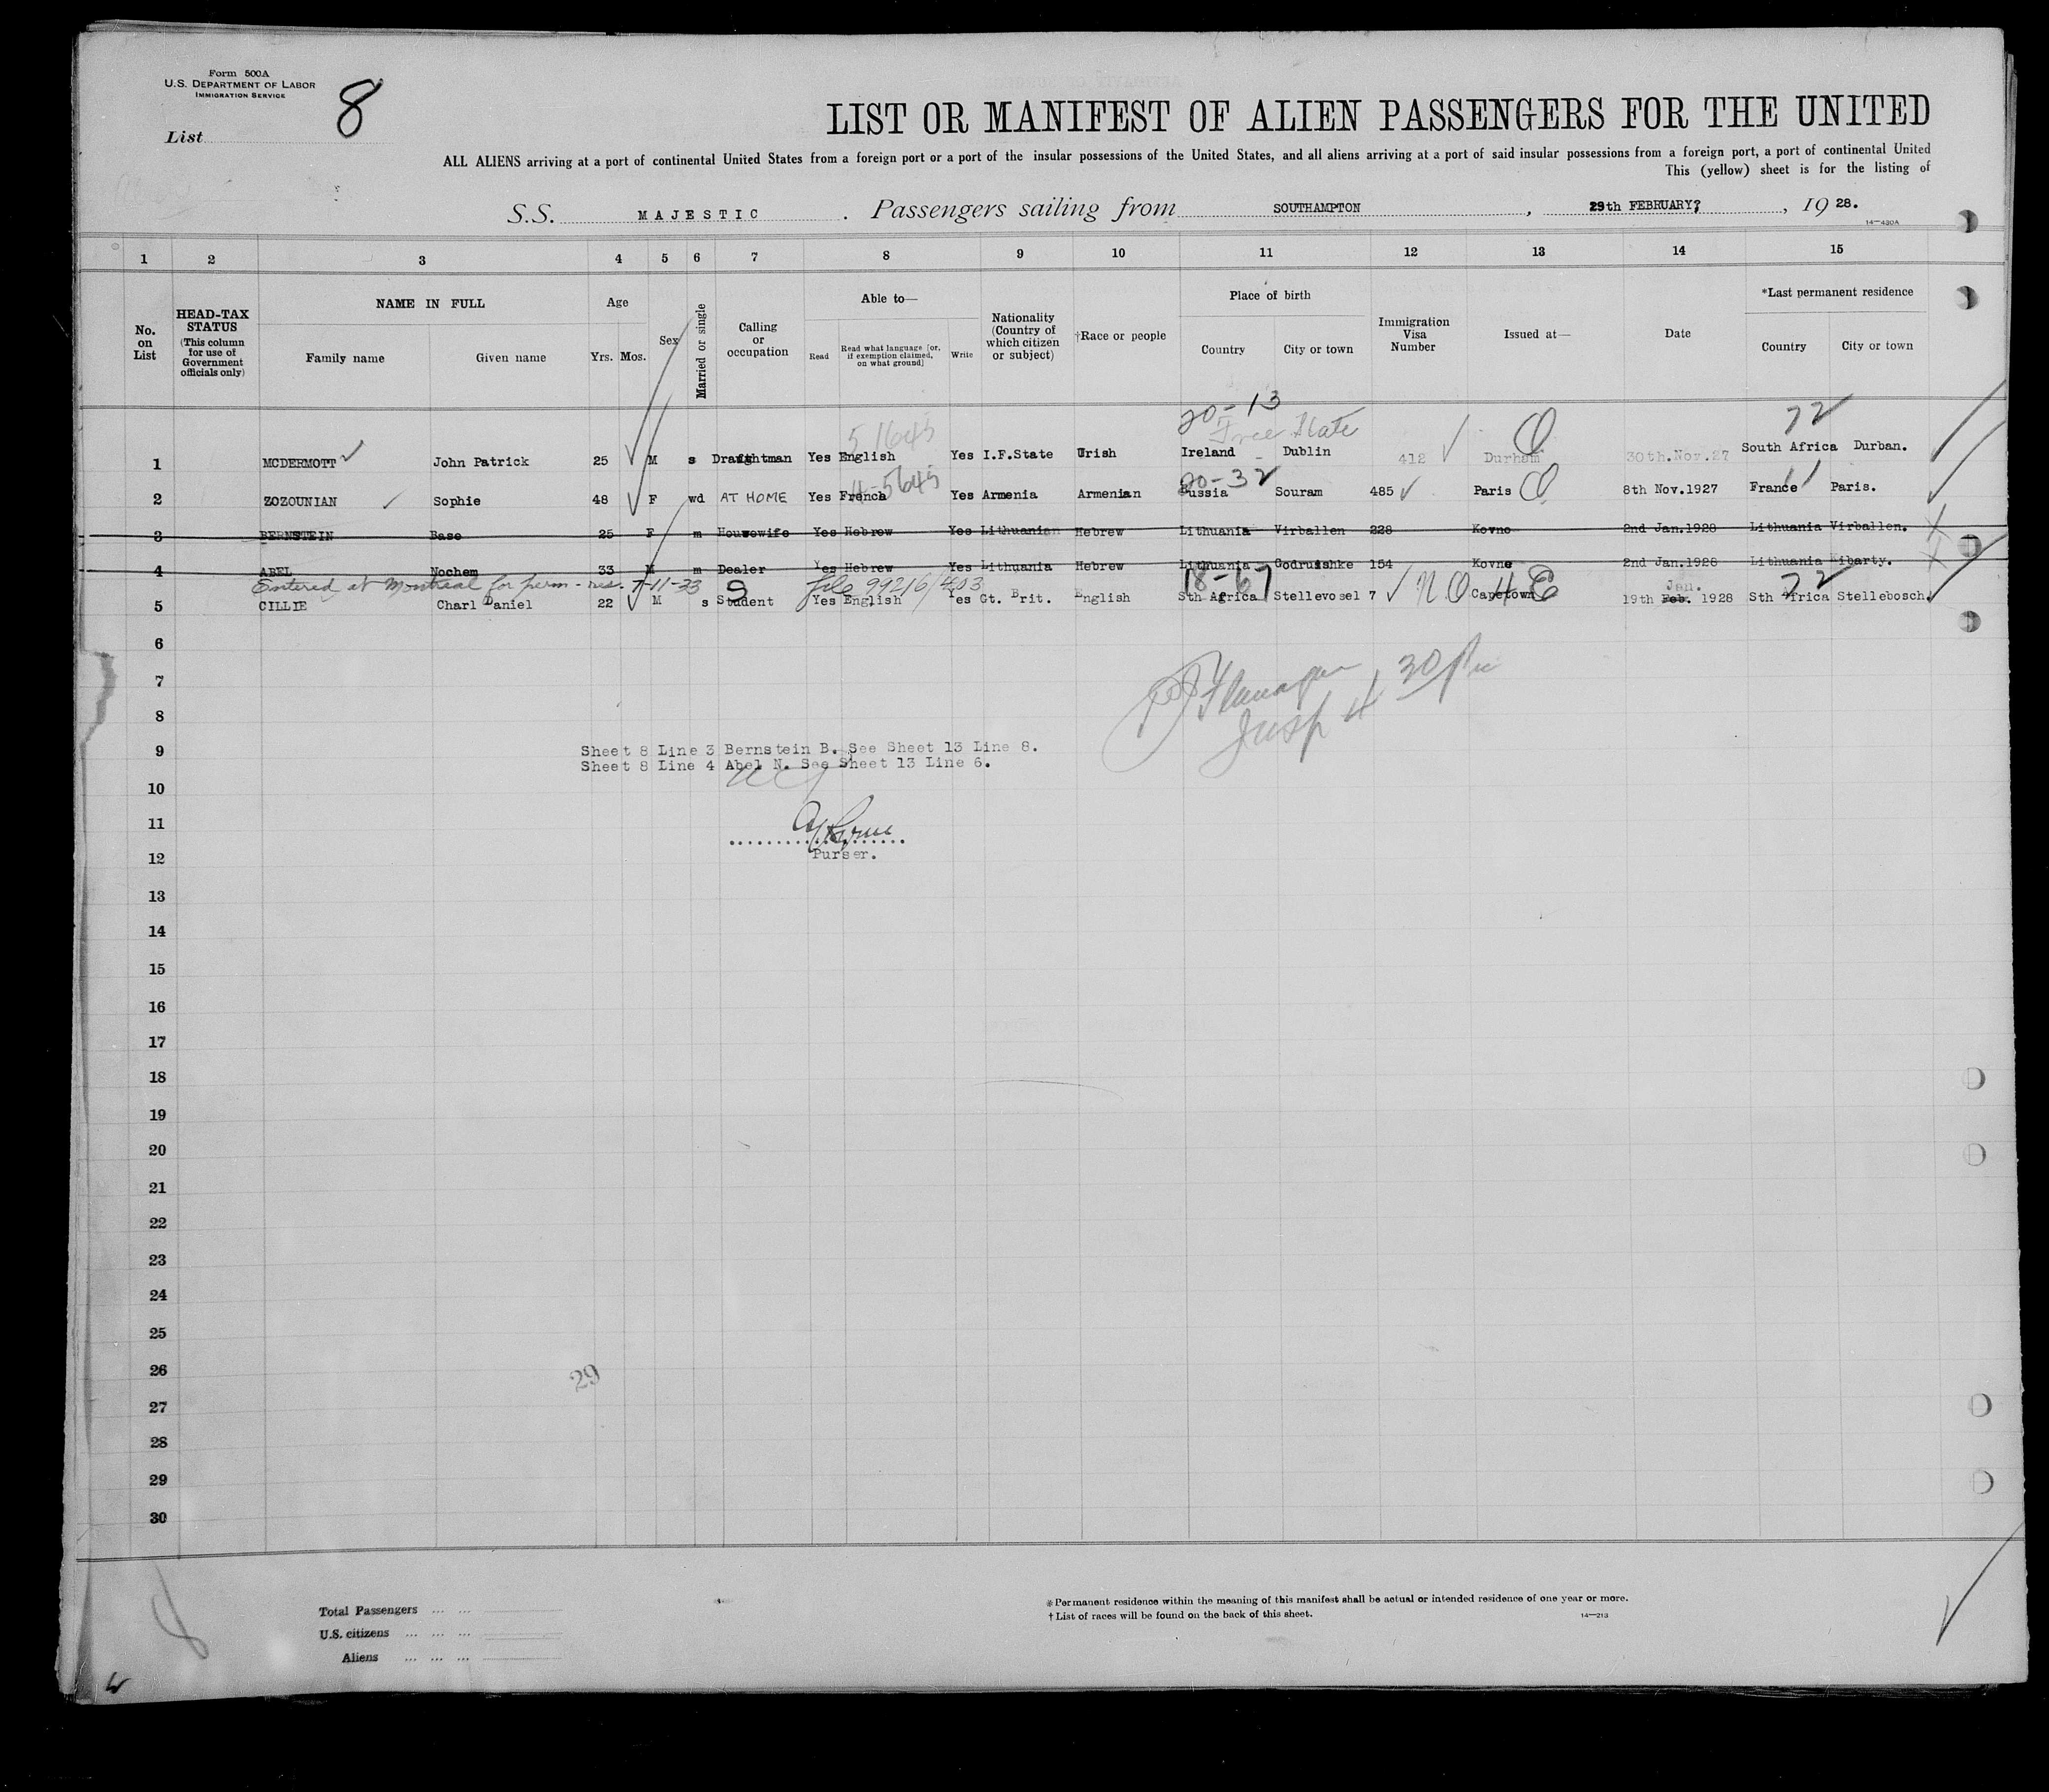 Form 500A
U.S. DEPARTMENT OF LABOR
IMMIGRATION SERVICE
List 8
LIST OR MANIFEST OF ALIEN PASSENGERS FOR THE UNITED
ALL ALIENS arriving at a port of continental United States from a foreign port or a port of the insular possessions of the United States, and all aliens arriving at a port of said insular possessions from a foreign port, a port of continental United
This (yellow) sheet is for the listing of
S.S. MAJESTIC . Passengers sailing from SOUTHAMPTON , 29th FEBRUARY, , 19 28.
14—430A
1 2 3 4 5 6 7 8 9 10 11 12 13 14 15
No. on List
HEAD-TAX STATUS (This column for use of Government officials only)
NAME IN FULL
Family name Given name
Age
Yrs. Mos.
Sex
Married or single
Calling or occupation
Able to—
Read Read what language [or, if exemption claimed, on what ground] Write
Nationality (Country of which citizen or subject)
†Race or people
Place of birth
Country City or town
Immigration Visa Number
Issued at—
Date
*Last permanent residence
Country City or town
20-13 72
5 1645 Free State
1 MCDERMOTT John Patrick 25 M s Draughtman Yes English Yes I.F.State Irish Ireland Dublin 412 Durham 30th.Nov.27 South Africa Durban.
4-5645 20-32 11
2 ZOZOUNIAN Sophie 48 F wd AT HOME Yes French Yes Armenia Armenian Russia Souram 485 Paris 8th Nov.1927 France Paris.
3 BERNSTEIN Base 25 F m Housewife Yes Hebrew Yes Lithuanian Hebrew Lithuania Virballen 228 Kovno 2nd Jan.1928 Lithuania Virballen.
4 ABEL Nochem 33 M m Dealer Yes Hebrew Yes Lithuania Hebrew Lithuania Godruishke 154 Kovne 2nd Jan.1928 Lithuania Kibarty.
Entered at Montreal for perm-res. 7-11-33 S file 99216/403 18-67 N.O. Jan. 72
5 CILLIE Charl Daniel 22 M s Student Yes English Yes Gt. Brit. English Sth Africa Stellevosel 7 Capetown 19th Feb. 1928 Sth Africa Stellebosch.
6
7
8
Flanagan
Insp
9
Sheet 8 Line 3 Bernstein B. See Sheet 13 Line 8.
Sheet 8 Line 4 Abel N. See Sheet 13 Line 6.
10
11
12
Purser.
13
14
15
16
17
18
19
20
21
22
23
24
25
26
29
27
28
29
30
Total Passengers ... ...
U.S. citizens ... ... ...
Aliens ... ... ...
* Permanent residence within the meaning of this manifest shall be actual or intended residence of one year or more.
† List of races will be found on the back of this sheet.
14—213